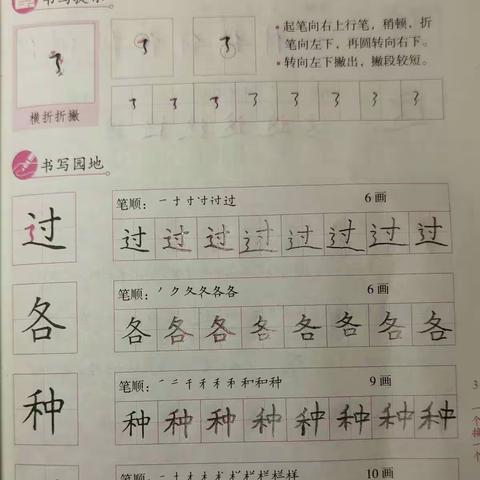 书写提示
• 起笔向右上行笔，稍顿，折
笔向左下，再圆转向右下。
• 转向左下撇出，撇段较短。
横折折撇
书写园地
笔顺：一十寸寸讨过 6画
过 过 过 过 过 过 过 过 过
笔顺：丿ク夂夂各各 6画
各 各 各 各 各 各 各 各 各
笔顺：一二千禾禾禾和和种 9画
种 种 种 种 种 种 种 种 种
笔顺： 样 10画